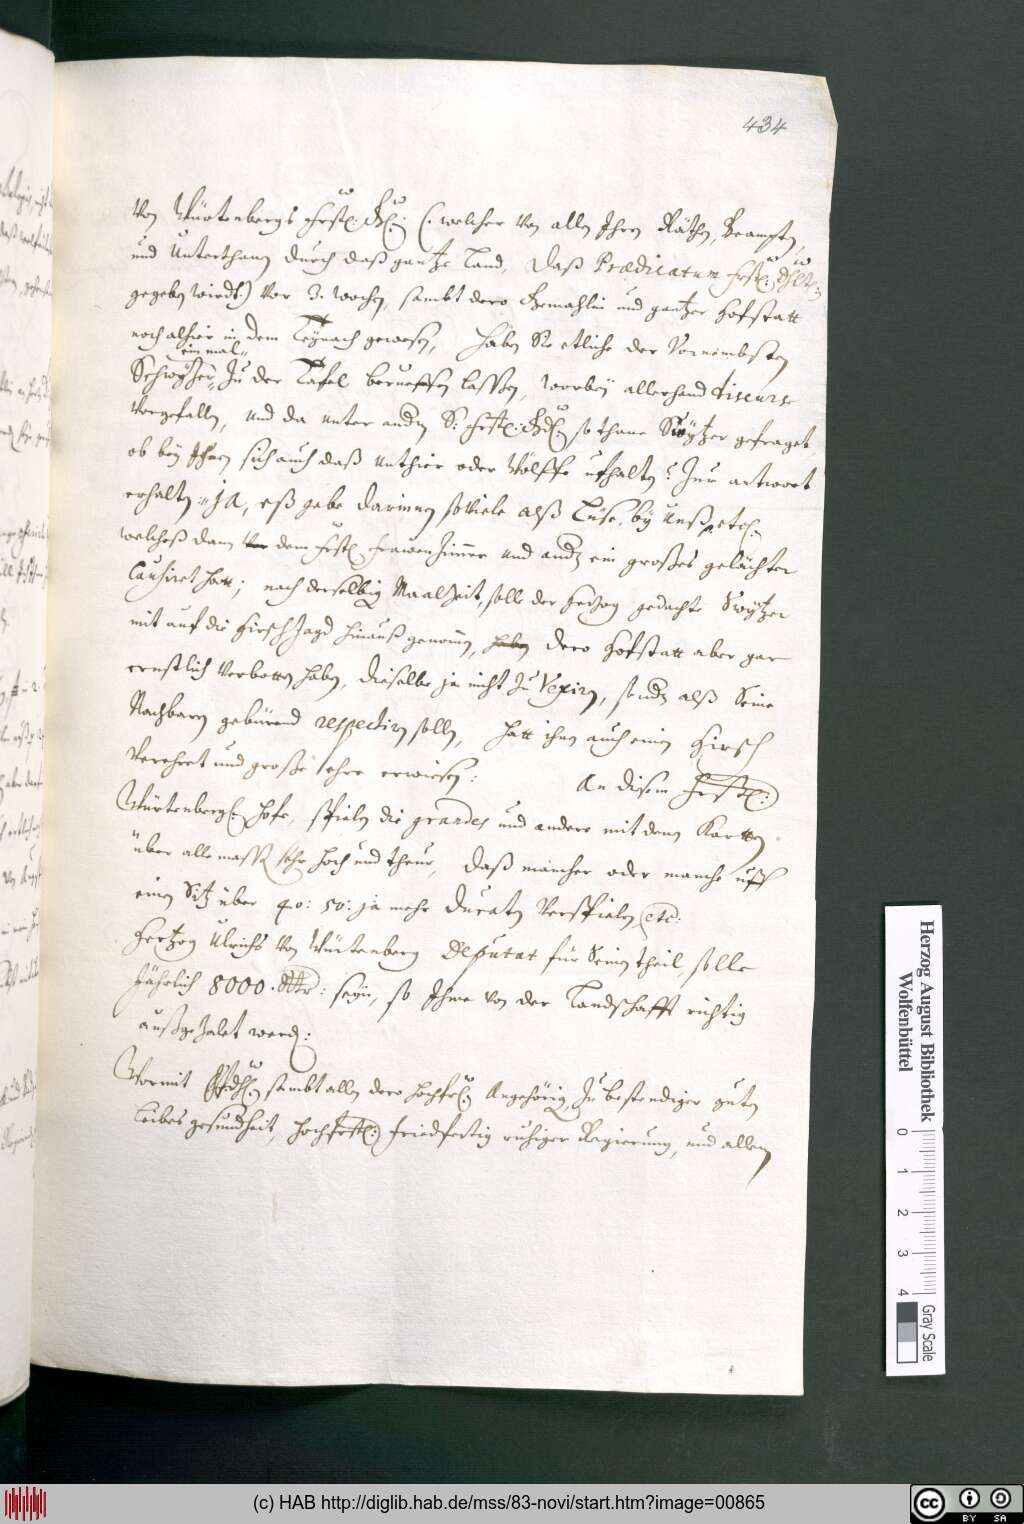 434
Von Würtenbergs Hrstl: Dhl: (: welcher von allen Ihren Räthen, Beampten,
und Unterthanen durch daß gantze Land, daß Prædicatum Frstl: Dhlt:
gegeben wirdt:) vor 3. wochen, sambt dero Gemahlin und gantzer Hofstatt
noch alhier in dem Teÿnach gewesen, haben Sie etliche der Vornembsten
ein mal
Schwÿtzer, zu der Tafel berueffen lassen, worbeÿ allerhand discurse
vorgefallen, und da unter andern S: Frstl: Dhl: so thane Swÿtzer gefraget
ob beÿ Ihnen sich auch daß unthier oder Wölffe ufhalten? Zur antwort
erhalten: JA, eß gebe darinnen soviele alß Lüse, bÿ unß, etc:
welcheß dann dem Frstl Frauenzimer und andern ein großes gelächter
causiret hatt; nach derselbigen Maalzeit, solle der Hertzog gedachte Swÿtzer
mit auf die Hirsch Jagd hinauß genomen, haben dero Hofstatt aber gar
ernstlich verbotten haben, dieselbe ja nicht zu Vexirn, sondern alß Seine
Nachbarn gebürend respectirn sollen, hatt ihnen auch einen Hirsch
verehret und große ehre erwiesen: An disem Frstl:
Würtenbergl: Hofe, spielen die grandes und andere mit denn Kartten
über alle massen sehr hoch und theur, daß mancher oder manche uff
einen Sitz über 40: 50: ja mehr Ducaten verspielen etc:
Hertzog Ulrichs von Würtenberg Deputat für Seinen theil, solle
Jährlich 8000. seÿn, so Ihme von der Landschafft richtig
außgezalet werden:
Wormit sambt allen dero hochfrl: Angehörigen, zu bestendiger guten
Leibes gesundheit, hochfrstl: friedfertig ruhiger Regierung, und allem
Herzog August Bibliothek
Wolfenbüttel
0 1 2 3 4
Gray Scale
(c) HAB http://diglib.hab.de/mss/83-novi/start.htm?image=00865
cc BY SA